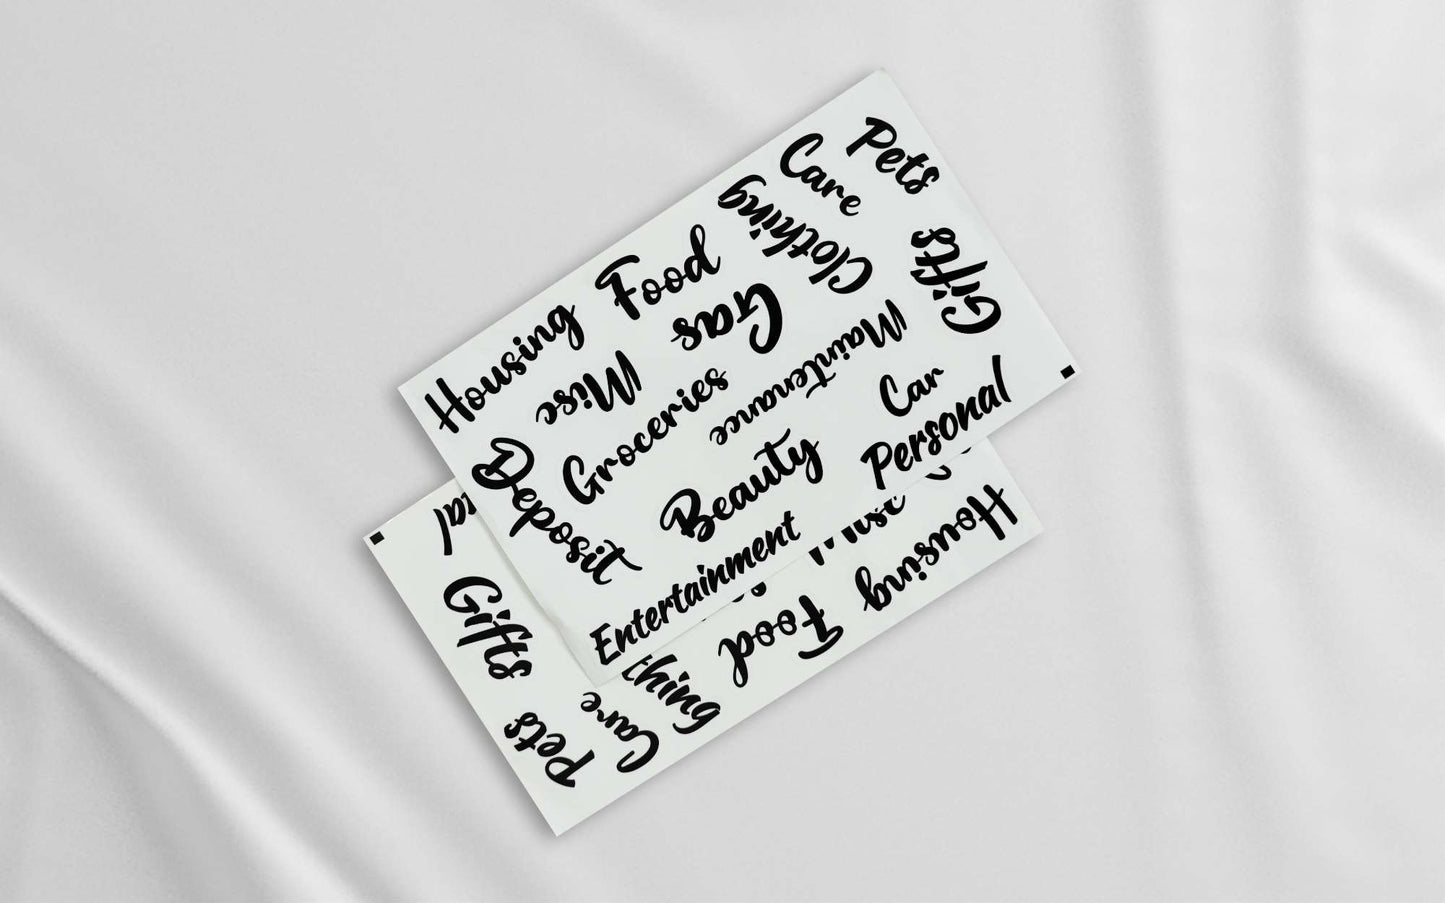 Housing
Food
Care
Pets
Misc
Gas
Clothing
Gifts
Deposit
Groceries
Maintenance
Car
Beauty
Personal
Entertainment
Gifts
Pets
Care
thing
Food
Housing